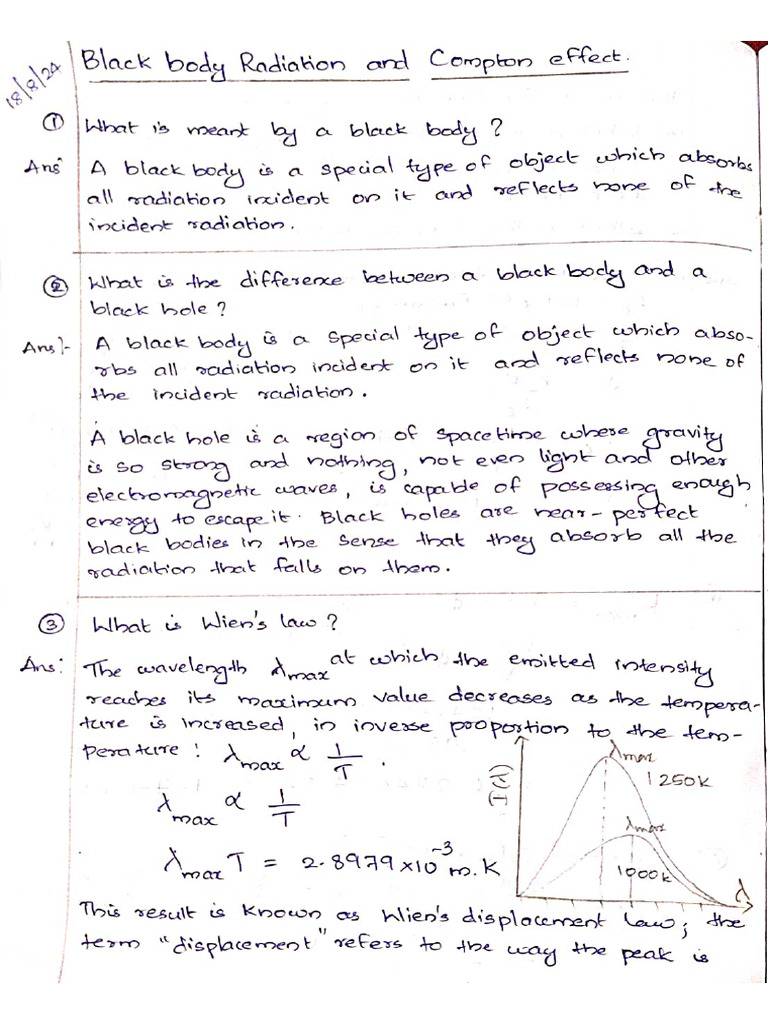 18/8/24
Black body Radiation and Compton effect.
① What is meant by a black body?
Ans: A black body is a special type of object which absorbs
all radiation incident on it and reflects none of the
incident radiation.
② What is the difference between a black body and a
black hole?
Ans:- A black body is a special type of object which abso-
rbs all radiation incident on it and reflects none of
the incident radiation.
A black hole is a region of spacetime where gravity
is so strong and nothing, not even light and other
electromagnetic waves, is capable of possessing enough
energy to escape it. Black holes are near-perfect
black bodies in the sense that they absorb all the
radiation that falls on them.
③ What is Wien's law?
Ans: The wavelength λmax at which the emitted intensity
reaches its maximum value decreases as the tempera-
ture is increased, in inverse proportion to the tem-
perature: λmax ∝ 1/T.
λmax ∝ 1/T
λmax T = 2.8979×10⁻³ m.K
I(λ)
λmax
1250K
λmax
1000K
λ
This result is known as Wien's displacement law; the
term "displacement" refers to the way the peak is